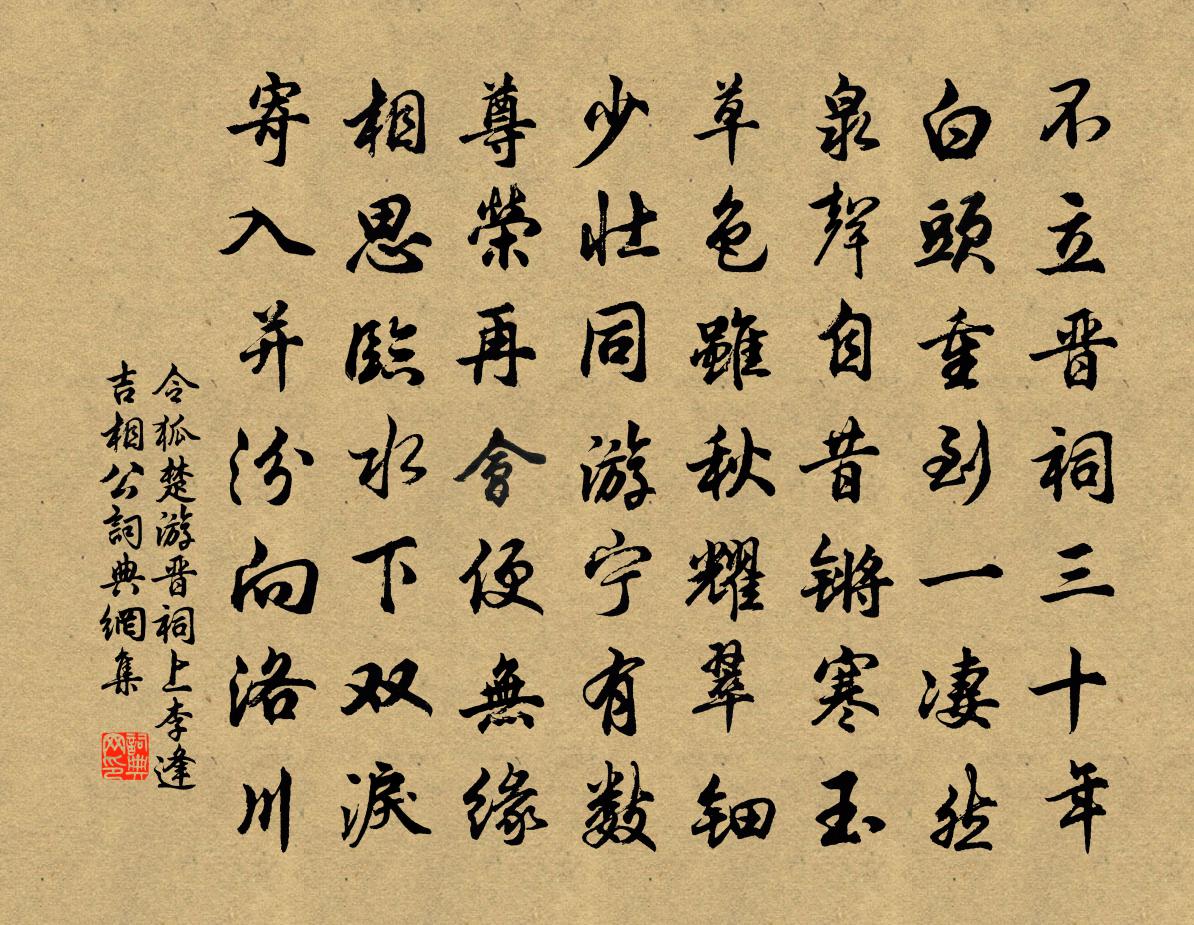 不立晋祠三十年
白頭重到一凄然
泉聲自昔锵寒玉
草色雖秋耀翠钿
少壮同游宁有数
尊榮再會便無緣
相思臨水下双淚
寄入并汾向洛川
令狐楚游晋祠上李逢
吉相公詞典網集
詞典网印